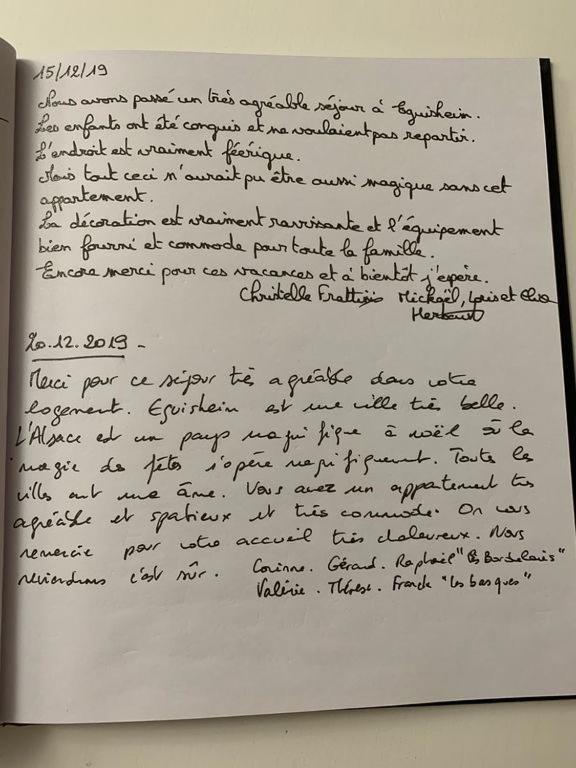 15/12/19
Nous avons passé un très agréable séjour à Eguisheim.
Les enfants ont été conquis et ne voulaient pas repartir.
L'endroit est vraiment féerique.
Mais tout ceci n'aurait pu être aussi magique sans cet
appartement.
La décoration est vraiment ravissante et l'équipement
bien fourni et commode pour toute la famille.
Encore merci pour ces vacances et à bientôt j'espère.
Christelle Mickaël, et
20.12.2019 -
Merci pour ce séjour très agréable dans votre
logement. Eguisheim est une ville très belle.
L'Alsace est un pays magnifique à noël où la
magie des fêtes s'opère magnifiquement. Toutes les
villes ont une âme. Vous avez un appartement très
agréable et spatieux et très commode. On vous
remercie pour votre accueil très chaleureux. Nous
reviendrons c'est sûr. Corinne. Gérard. Raphaël "les Bordelais"
Valérie. Thérèse. Franck "les basques"